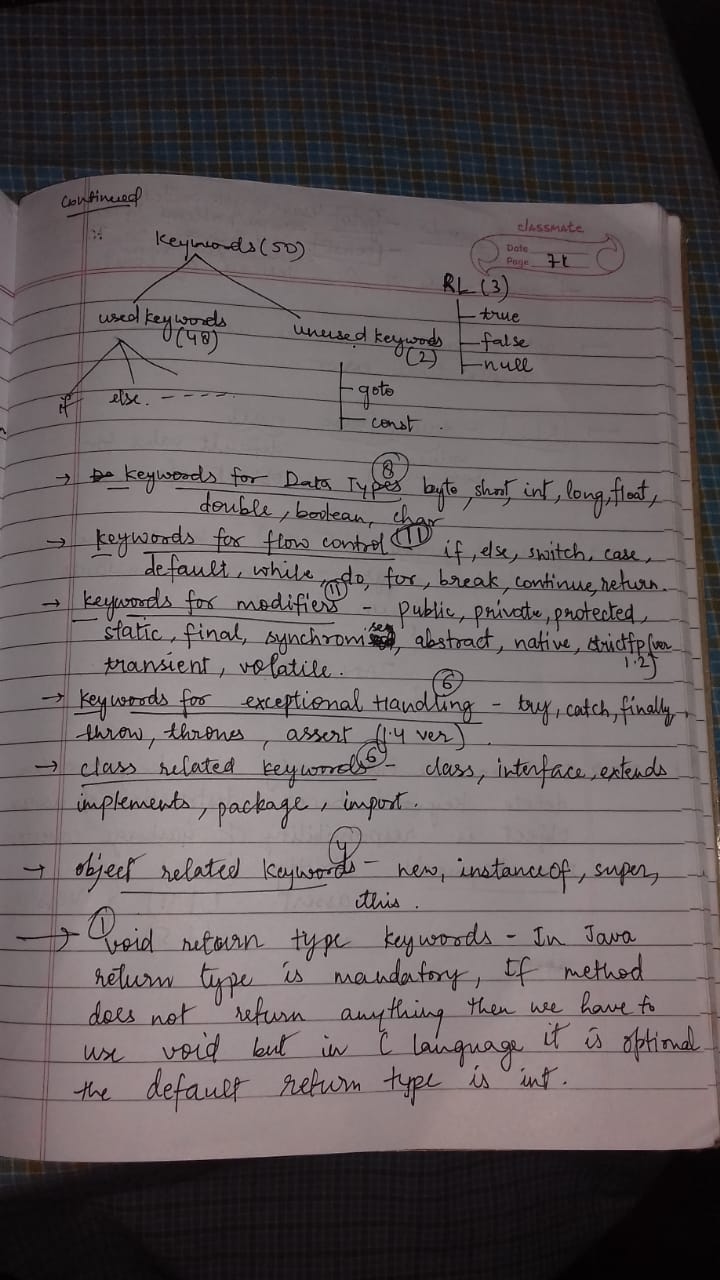 continued
classmate
Date
Page 7k
Keywords (50)
RL (3)
true
false
null
used keywords
(48)
unused keywods
(2)
if else. - - - - -
goto
const .
→ Keywords for Data Types (8) byte, short, int, long, float,
double, boolean, char
→ keywords for flow control (11) if, else, switch, case,
default, while, do, for, break, continue, return.
→ keywords for modifiers (11) - public, private, protected,
static, final, synchronised, abstract, native, strictfp (ver
1.2)
transient, volatile.
→ keywords for exceptional Handling (6) - try, catch, finally,
throw, thrones, assert (1.4 ver)
→ class related keywords (6) - class, interface, extends
implements, package, import.
→ object related keywords (4) - new, instanceof, super,
this.
→ (1) void return type keywoods - In Java
return type is mandatory, If method
does not return anything then we have to
use void but in C language it is optional
the default return type is int.